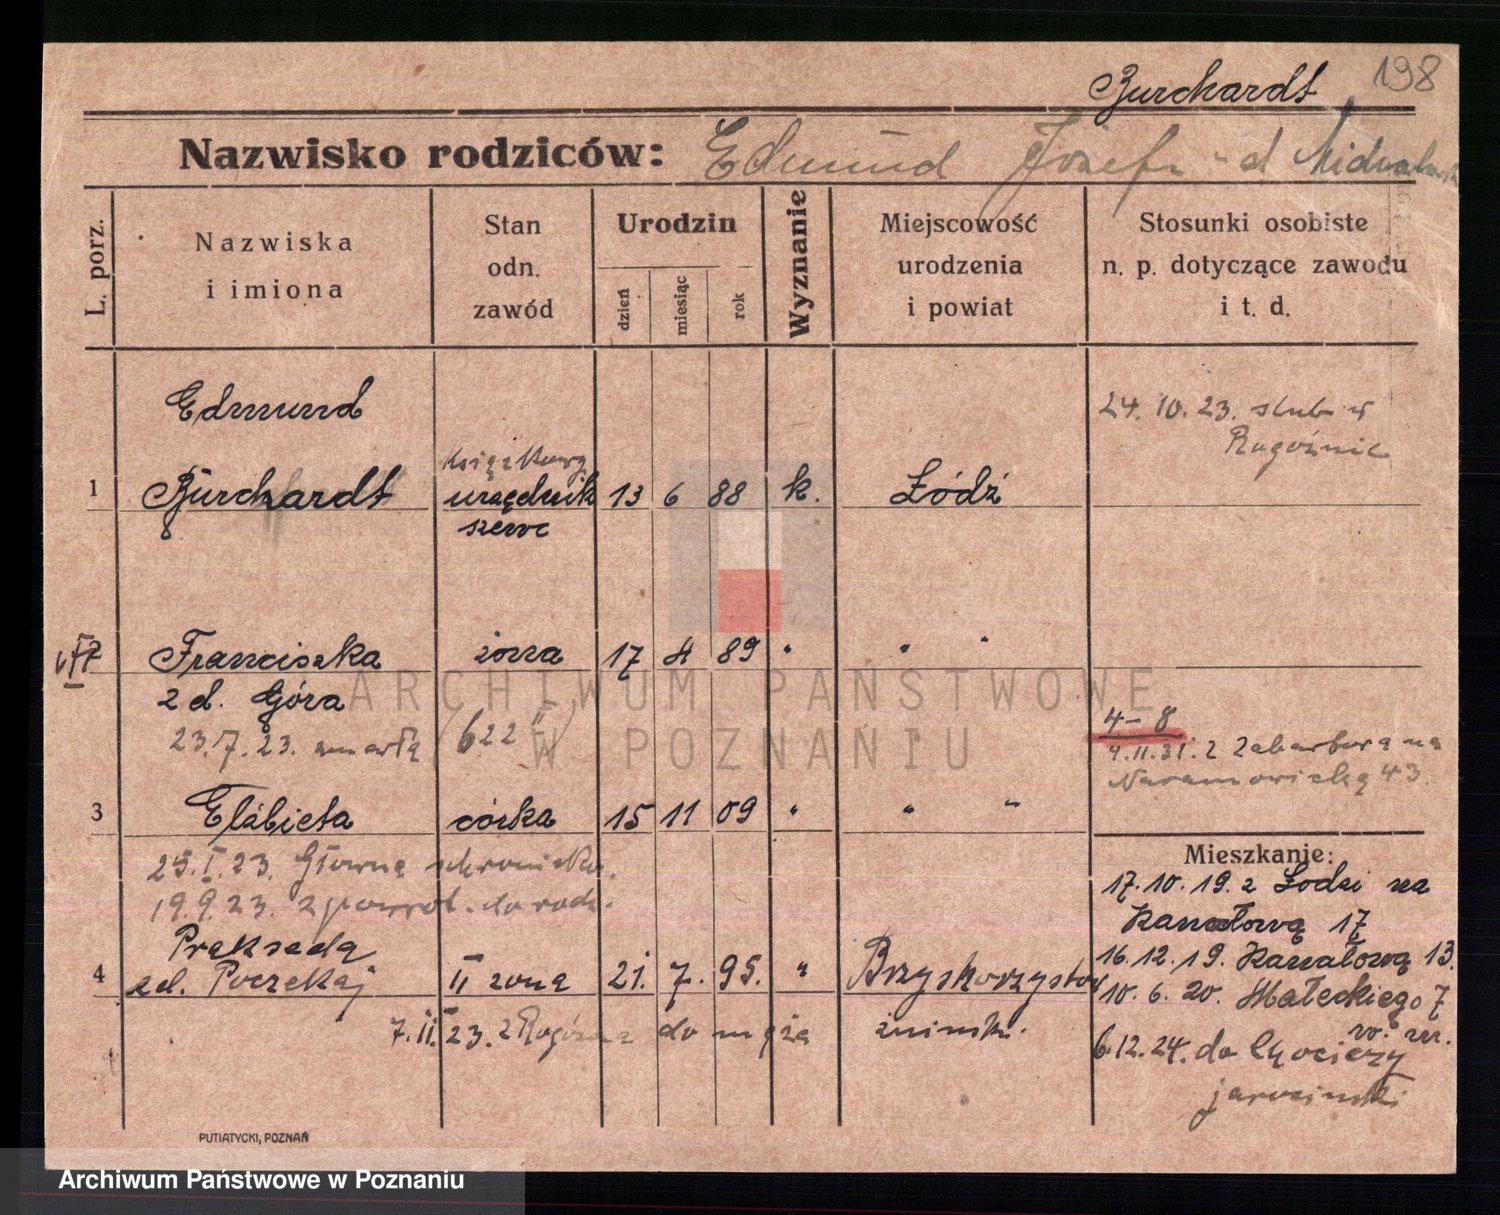 Burchardt 198
Nazwisko rodziców: Edmund Józefa
L. porz.
Nazwiska i imiona
Stan odn. zawód
Urodzin
dzień
miesiąc
rok
Wyznanie
Miejscowość urodzenia i powiat
Stosunki osobiste n. p. dotyczące zawodu i t. d.
Edmund
24. 10. 23. ślub w
Rogoźnie
książkowy
1 Burchardt urzędnik 13 6 88 k. Łódź
szewc
2 Franciszka żona 17 4 89 " " "
z d. Góra
23. 7. 23. zmarła 622
4-8
4.11.31. z Zabartowa na
Naramowicką 43.
3 Elżbieta córka 15 11 09 " " "
25. I. 23. Główna schronisko.
19. 9. 23. z powrot. do rodz.
Mieszkanie:
17. 10. 19. z Łodzi na
Kanałową 17
16. 12. 19. Kanałową 13.
10. 6. 20. Małeckiego 7
6. 12. 24. do
jarociński
Prakseda
4 zd. Poczekaj II żona 21. 7. 95. " Brzyskorzystew
7. II. 23. z Rogoźna do męża żniński.
PUTIATYCKI, POZNAŃ
ARCHIWUM PAŃSTWOWE
W POZNANIU
Archiwum Państwowe w Poznaniu